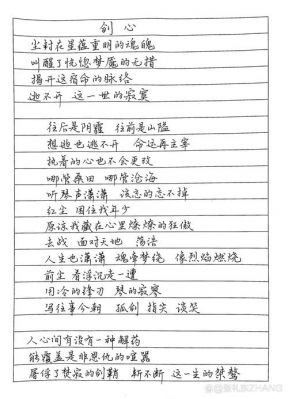 剑心
尘封在星蕴重明的魂魄
叫醒了恍惚梦魇的无措
揭开这宿命的脉络
逃不开 这一世的寂寞
往后是阴霾 往前是山隘
想逃也逃不开 命运再主宰
执着的心也不会更改
哪管桑田 哪管沧海
听琴声潇潇 该忘的忘不掉
红尘 困住我年少
原谅我藏在心里燎燎的狂傲
去战 面对天地 荡浩
人生也潇潇 魂牵梦绕 像烈焰燃烧
前尘 看浮沉走一遭
用冷的锋刃 琴的寂寥
写往事今朝 孤剑 指尖 谈笑
人心间有没有一种解药
能覆盖是非恩仇的喧嚣
屠俘了焚寂的剑鞘 斩不断 这一生的桀骜